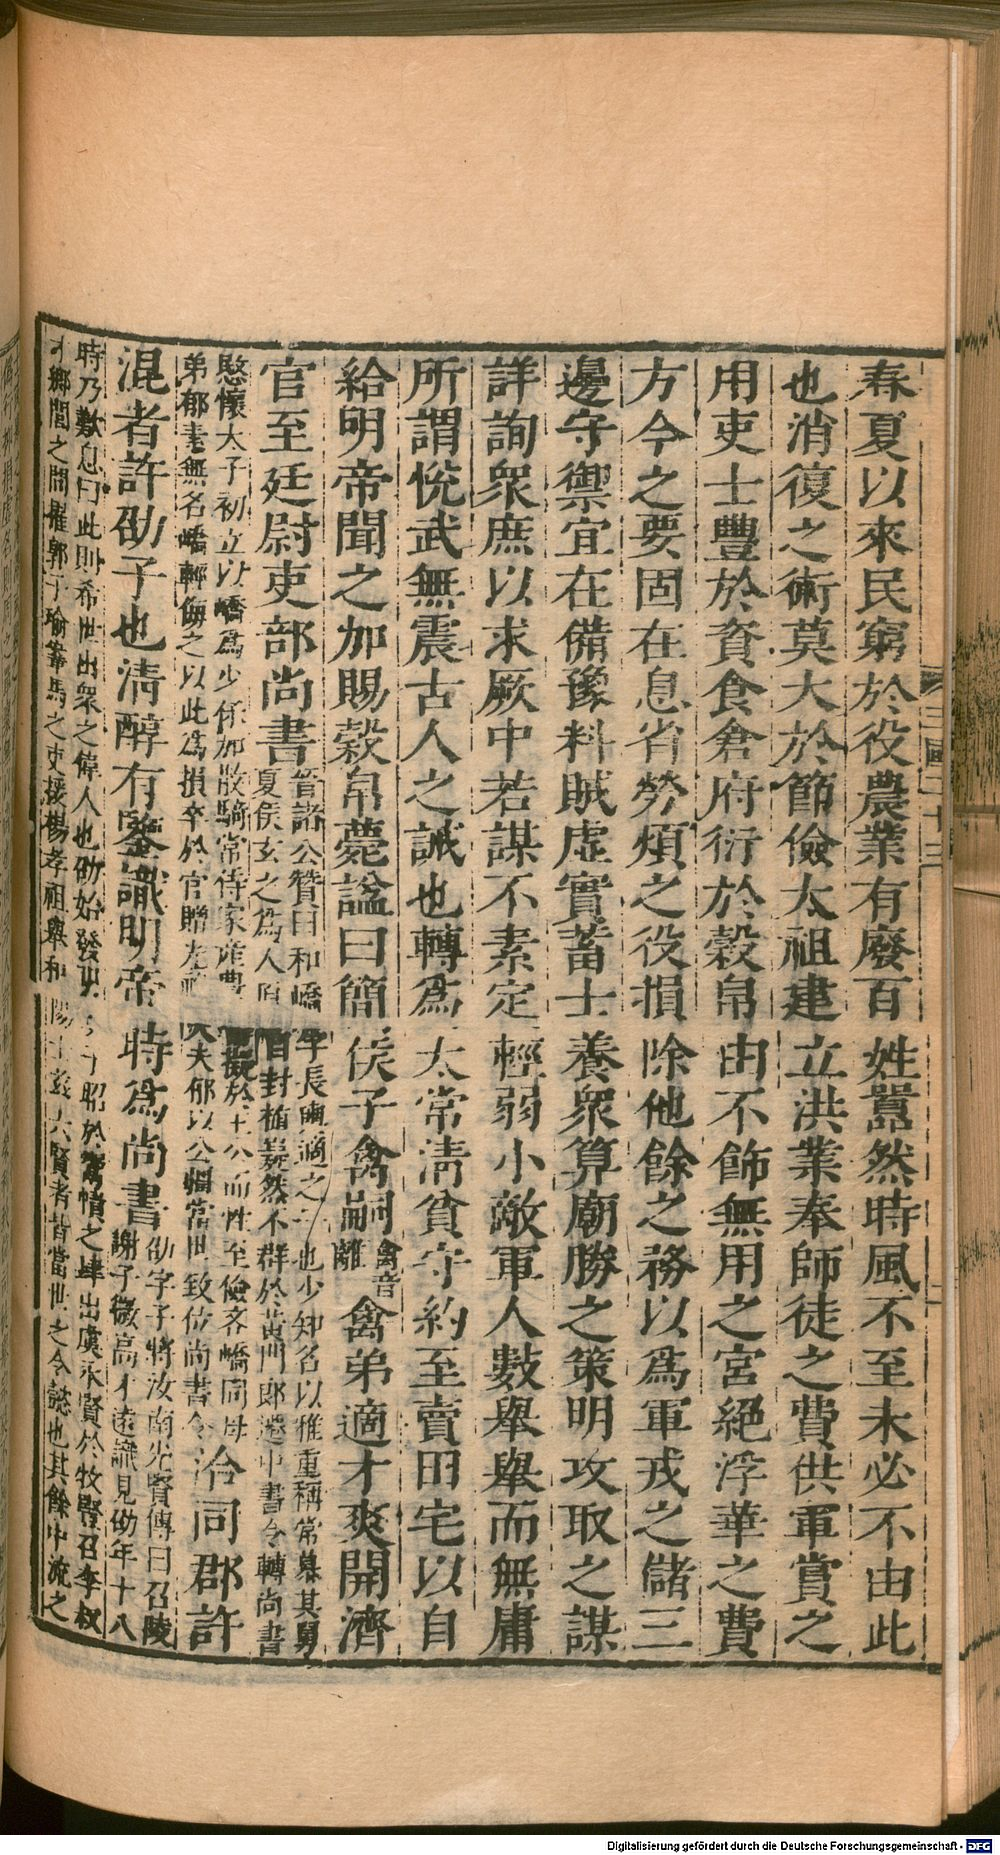 春夏以來民窮於役農業有廢百姓囂然時風不至未必不由此
也消復之術莫大於節儉太祖建立洪業奉師徒之費供軍賞之
用吏士豐於資食倉府衍於穀帛由不飾無用之宮絕浮華之費
方今之要固在息省勞煩之役損除他餘之務以為軍戎之儲三
邊守禦宜在備豫料賊虛實蓄士養眾算廟勝之策明攻取之謀
詳詢眾庶以求厥中若謀不素定輕弱小敵軍人數舉舉而無庸
所謂悅武無震古人之誡也轉為太常清貧守約至賣田宅以自
給明帝聞之加賜穀帛薨諡曰簡侯子禽嗣
禽音
離
禽弟適才爽開濟
官至廷尉吏部尚書
晉諸公贊曰和嶠字長輿適之子也少知名以雅重稱常慕其舅
夏侯玄之為人厚自封植嶷然不群於黃門郎遷中書令轉尚書
愍懷太子初立以嶠為少保加散騎常侍家產豐擬於王公而性至儉吝嶠同母
弟郁素無名嶠輕侮之以此為損卒於官贈光祿大夫郁以公彊當世致位尚書令
洽同郡許
混者許劭子也清醇有鑒識明帝時為尚書
劭字子將汝南先賢傳曰召陵
謝子微高才遠識見劭年十八
時乃歎息曰此則希世出眾之偉人也劭始發明樊子昭於鬻幘之肆出虞永賢於牧豎召李叔
才鄉閭之間擢郭子瑜鞍馬之吏援楊孝祖舉和陽士茲六賢者皆當世之令懿也其餘中流之
三國二十三
Digitalisierung gefördert durch die Deutsche Forschungsgemeinschaft - DFG